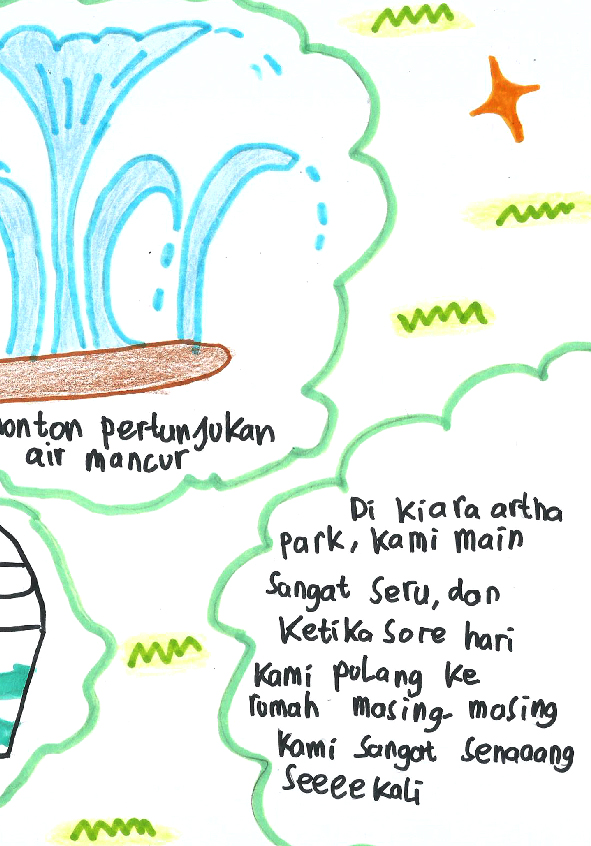 nonton pertunjukan
air mancur
Di kiara artha
park, kami main
Sangat Seru, dan
Ketika Sore hari
Kami pulang ke
rumah masing-masing
Kami Sangat Senaaang
Seeee kali